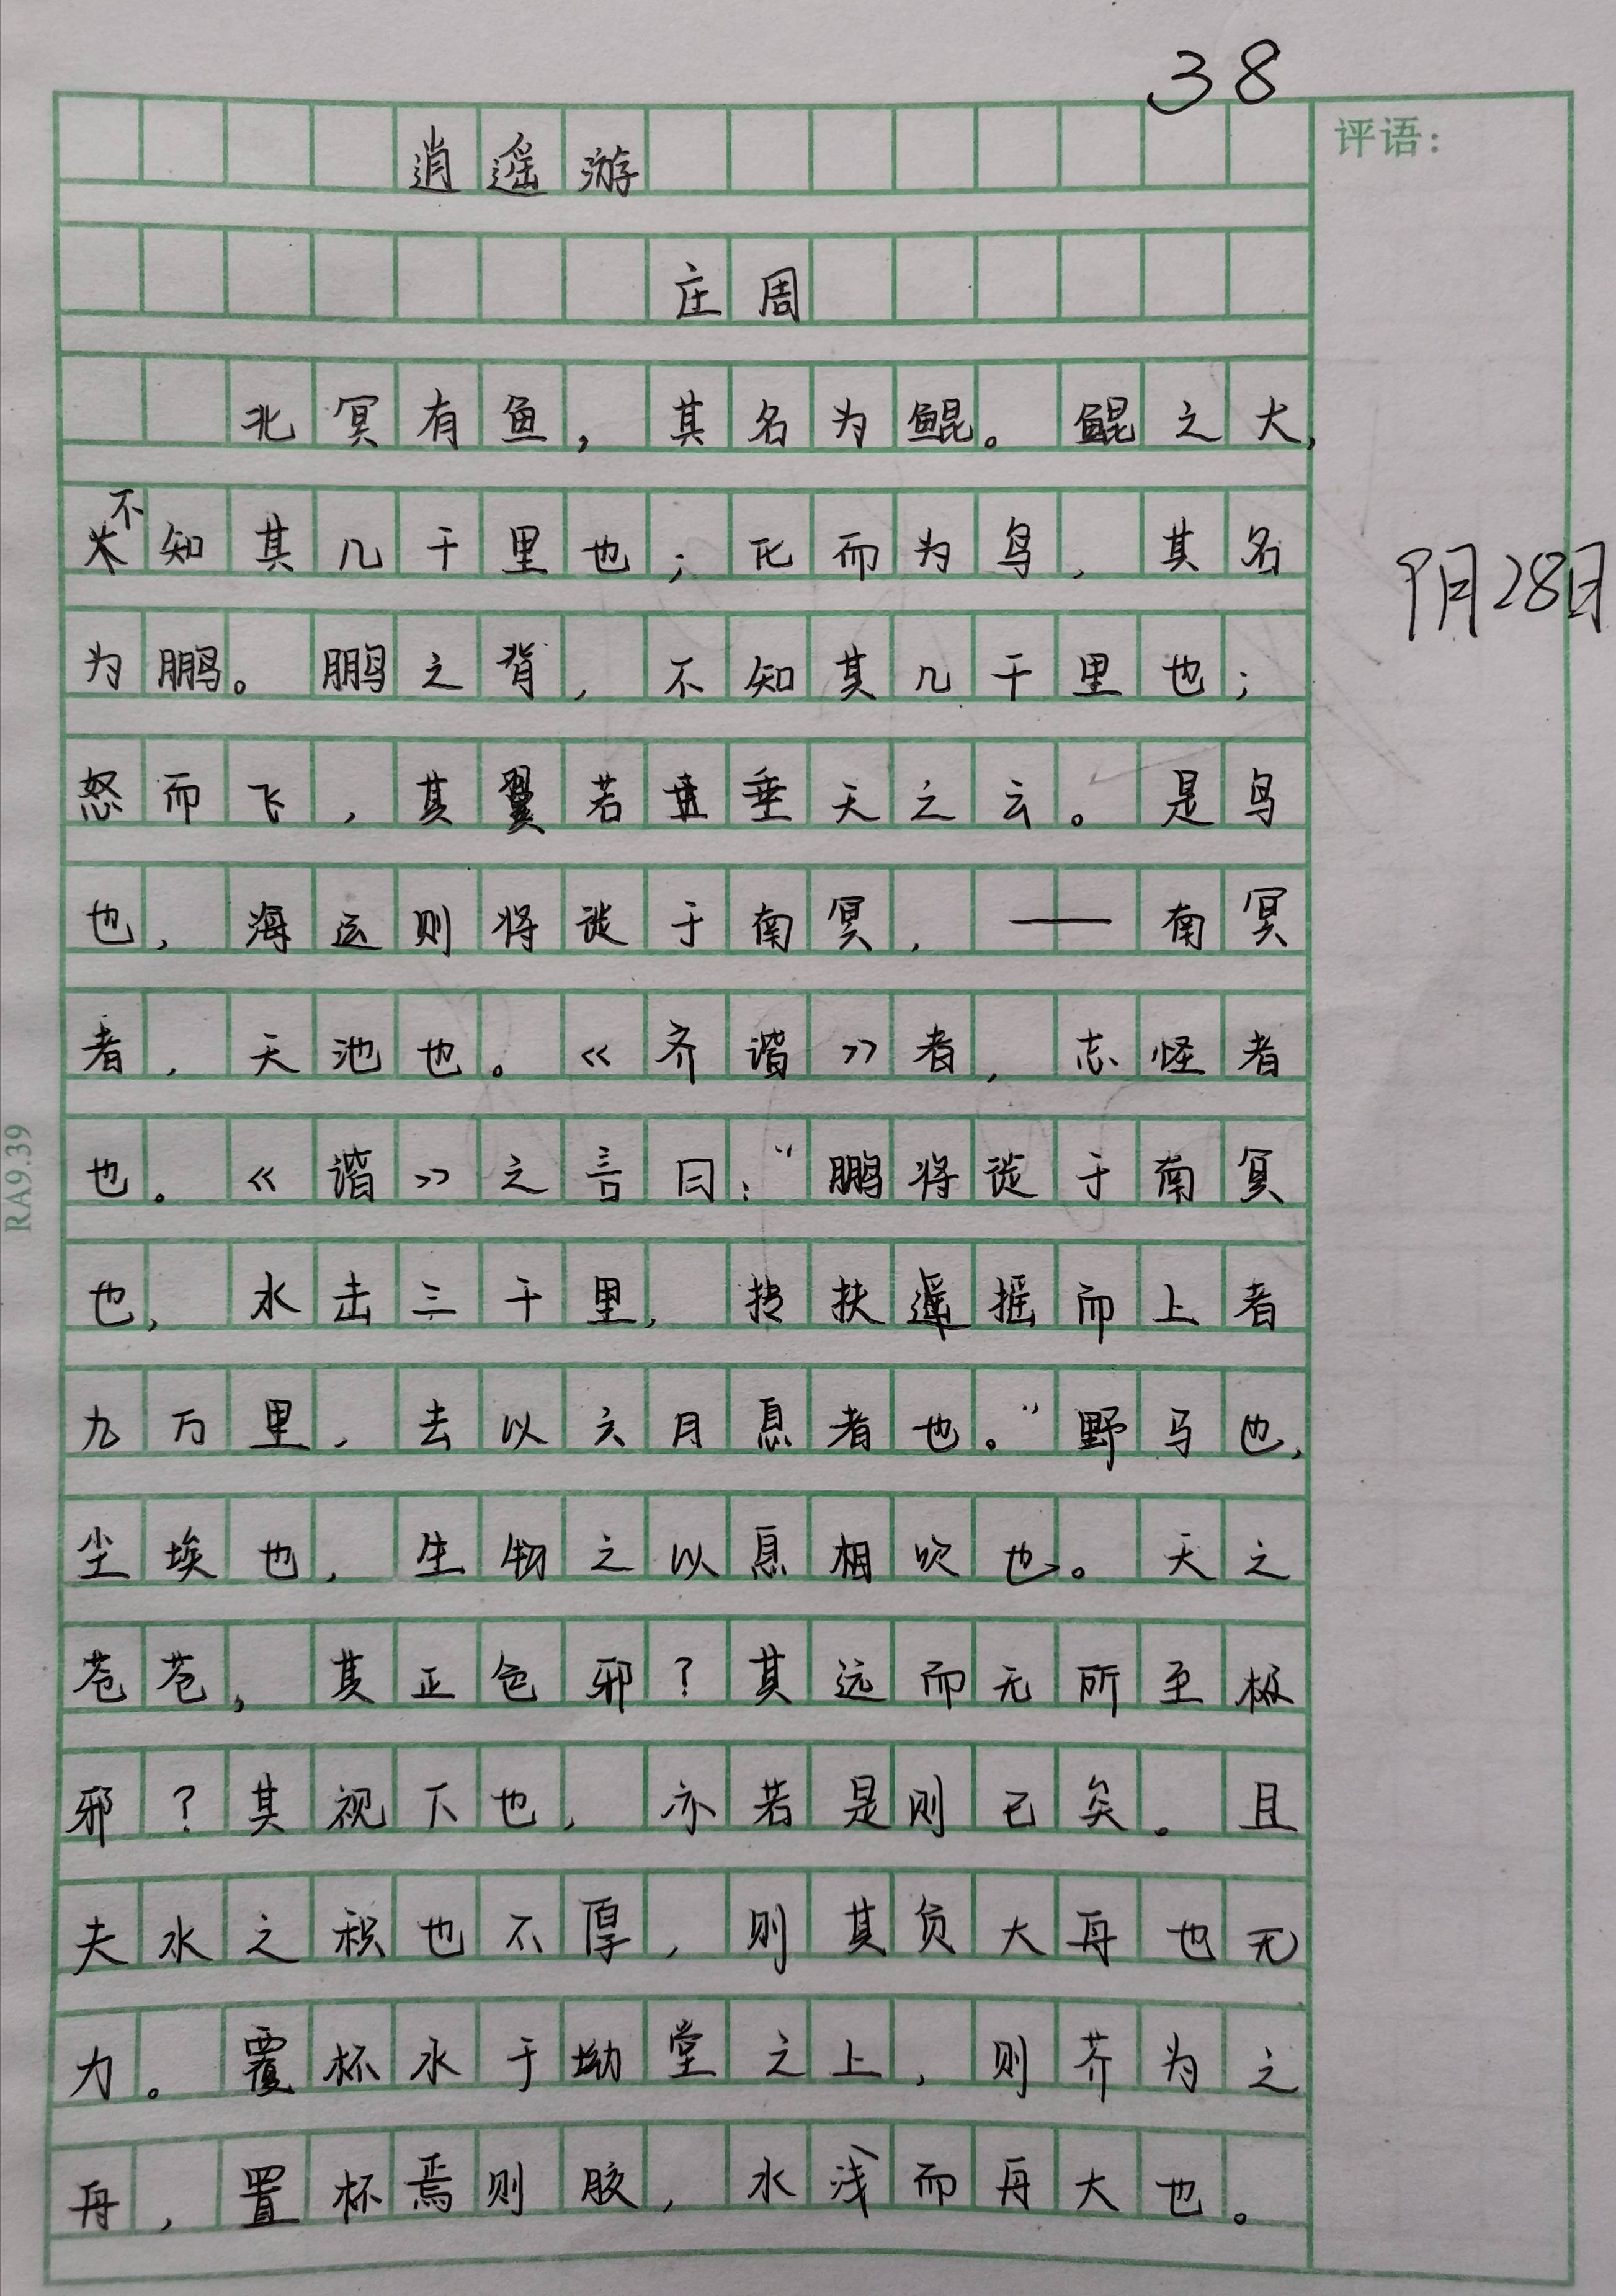 38
评语：
逍遥游
庄周
北冥有鱼，其名为鲲。鲲之大，
不知其几千里也；化而为鸟，其名
为鹏。鹏之背，不知其几千里也；
怒而飞，其翼若垂天之云。是鸟
也，海运则将徙于南冥，——南冥
者，天池也。《齐谐》者，志怪者
也。《谐》之言曰：“鹏将徙于南冥
也，水击三千里，抟扶摇而上者
九万里，去以六月息者也。”野马也，
尘埃也，生物之以息相吹也。天之
苍苍，其正色邪？其远而无所至极
邪？其视下也，亦若是则已矣。且
夫水之积也不厚，则其负大舟也无
力。覆杯水于坳堂之上，则芥为之
舟，置杯焉则胶，水浅而舟大也。
9月28日
RA9.39